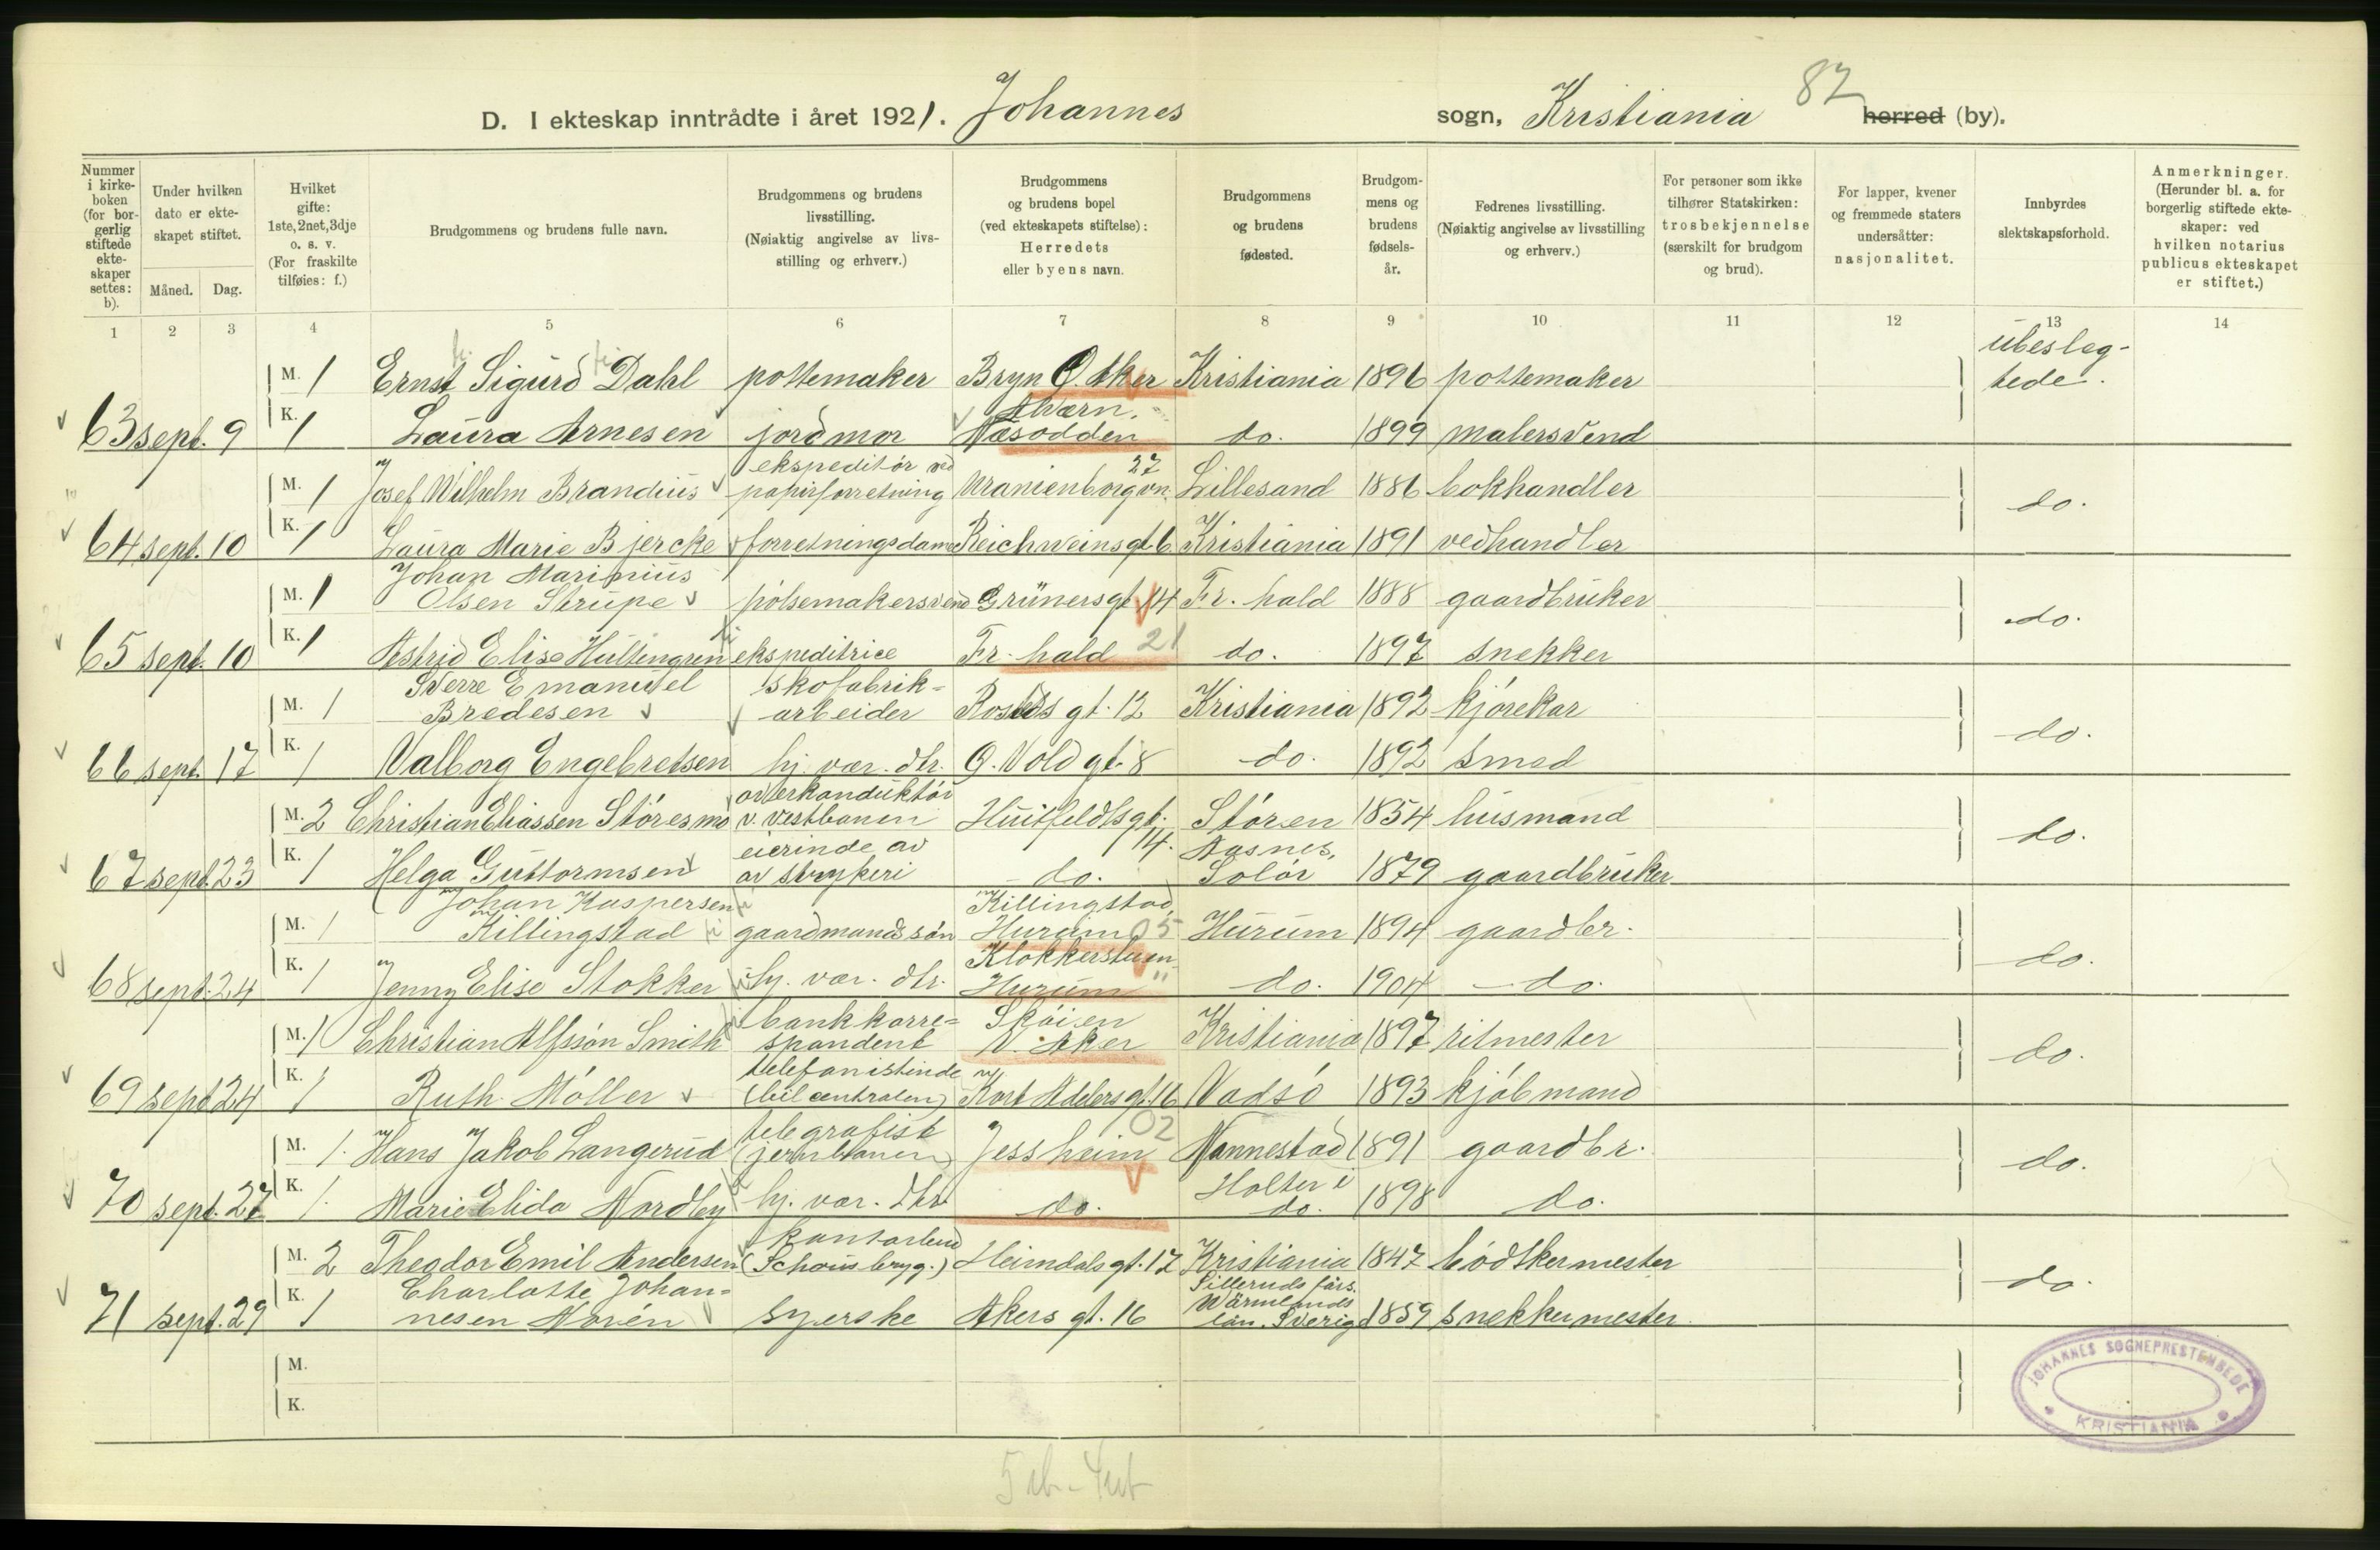 82
D. I ekteskap inntrådte i året 1921. Johannes sogn, Kristiania herred (by).
Nummer i kirkeboken (for borgerlig stiftede ekteskaper settes: b).
Under hvilken dato er ekteskapet stiftet.
Måned. Dag.
Hvilket gifte: 1ste, 2net, 3dje o. s. v. (For fraskilte tilføies: f.)
Brudgommens og brudens fulle navn.
Brudgommens og brudens livsstilling. (Nøiaktig angivelse av livsstilling og erhverv.)
Brudgommens og brudens bopel (ved ekteskapets stiftelse): Herredets eller byens navn.
Brudgommens og brudens fødested.
Brudgommens og brudens fødselsår.
Fedrenes livsstilling. (Nøiaktig angivelse av livsstilling og erhverv.)
For personer som ikke tilhører Statskirken: trosbekjennelse (særskilt for brudgom og brud).
For lapper, kvener og fremmede staters undersåtter: nasjonalitet.
Innbyrdes slektskapsforhold.
Anmerkninger. (Herunder bl. a. for borgerlig stiftede ekteskaper: ved hvilken notarius publicus ekteskapet er stiftet.)
1 2 3 4 5 6 7 8 9 10 11 12 13 14
M. 1 Ernst Sigurd Dahl pottemaker Bryn Ø. Aker Kristiania 1896 pottemaker ubesleg-
tede.
63 sept. 9 K. 1 Laura Arnesen jordmor Alværn. Næsodden do. 1899 malersvend
M. 1 Josef Wilhelm Brandius ekspeditør ved papirforretning Uranienborgvn. 27 Lillesand 1886 bokhandler do.
64 sept. 10 K. 1 Laura Marie Bjercke forretningsdame Reichweinsgt 6 Kristiania 1891 vedhandler
M. 1 Johan Marinius Olsen Strupe pølsemakersvend Grünersgt 14 Fr. hald 1888 gaardbruker do.
65 sept. 10 K. 1 Astrid Elise Hultengren ekspeditrice Fr. hald 21 do. 1897 snekker
M. 1 Sverre Emanuel Bredesen skofabrik-arbeider Rosteds gt. 12 Kristiania 1892 kjørekar do.
66 sept. 17 K. 1 Valborg Engebretsen hj. vær. dtr. Ø. Vold gt. 8 do. 1892 smed
M. 2 Christian Eliassen Støresmo overkonduktør v. vestbanen Huitfeldtsgt. 14. Støren 1854 husmand do.
67 sept. 23 K. 1 Helga Guttormsen eierinde av av strykeri do. Aasnes, Solør 1879 gaardbruker
M. 1 Johan Kaspersen Killingstad gaardmandssøn Killingstad, Hurum 05 Hurum 1894 gaardbr. do.
68 sept. 24 K. 1 Jenny Elise Stokker hj. vær. dtr. Klokkerstuen Hurum " do. 1904 do.
M. 1 Christian Alfssøn Smith bankkorre-spondent Skøien V. Aker Kristiania 1897 ritmester do.
69 sept 24 K. 1 Ruth Møller telefonistinde (bilcentralen) Kort Adelers gt. 16 Vadsø 1893 kjøbmand
M. 1. Hans Jakob Langerud telegrafist (jernbanen) Jessheim 02 Nannestad 1891 gaardbr. do.
70 sept. 27 K. 1. Marie Elida Nordby hj. vær. dtr. do. Holter i do. 1898 do.
M. 2 Theodor Emil Andersen kontorbud (Schous bryg.) Heimdals gt. 12 Kristiania 1847 bødkermester do.
71 sept. 29 K. 1 Charlotte Johan-nesen Norén syerske Akers gt. 16 Silleruds førs. Wärmlands län. Sverige 1859 snekkermester.
M.
K.
JOHANNES SOGNEPRESTEMBEDE
KRISTIANIA